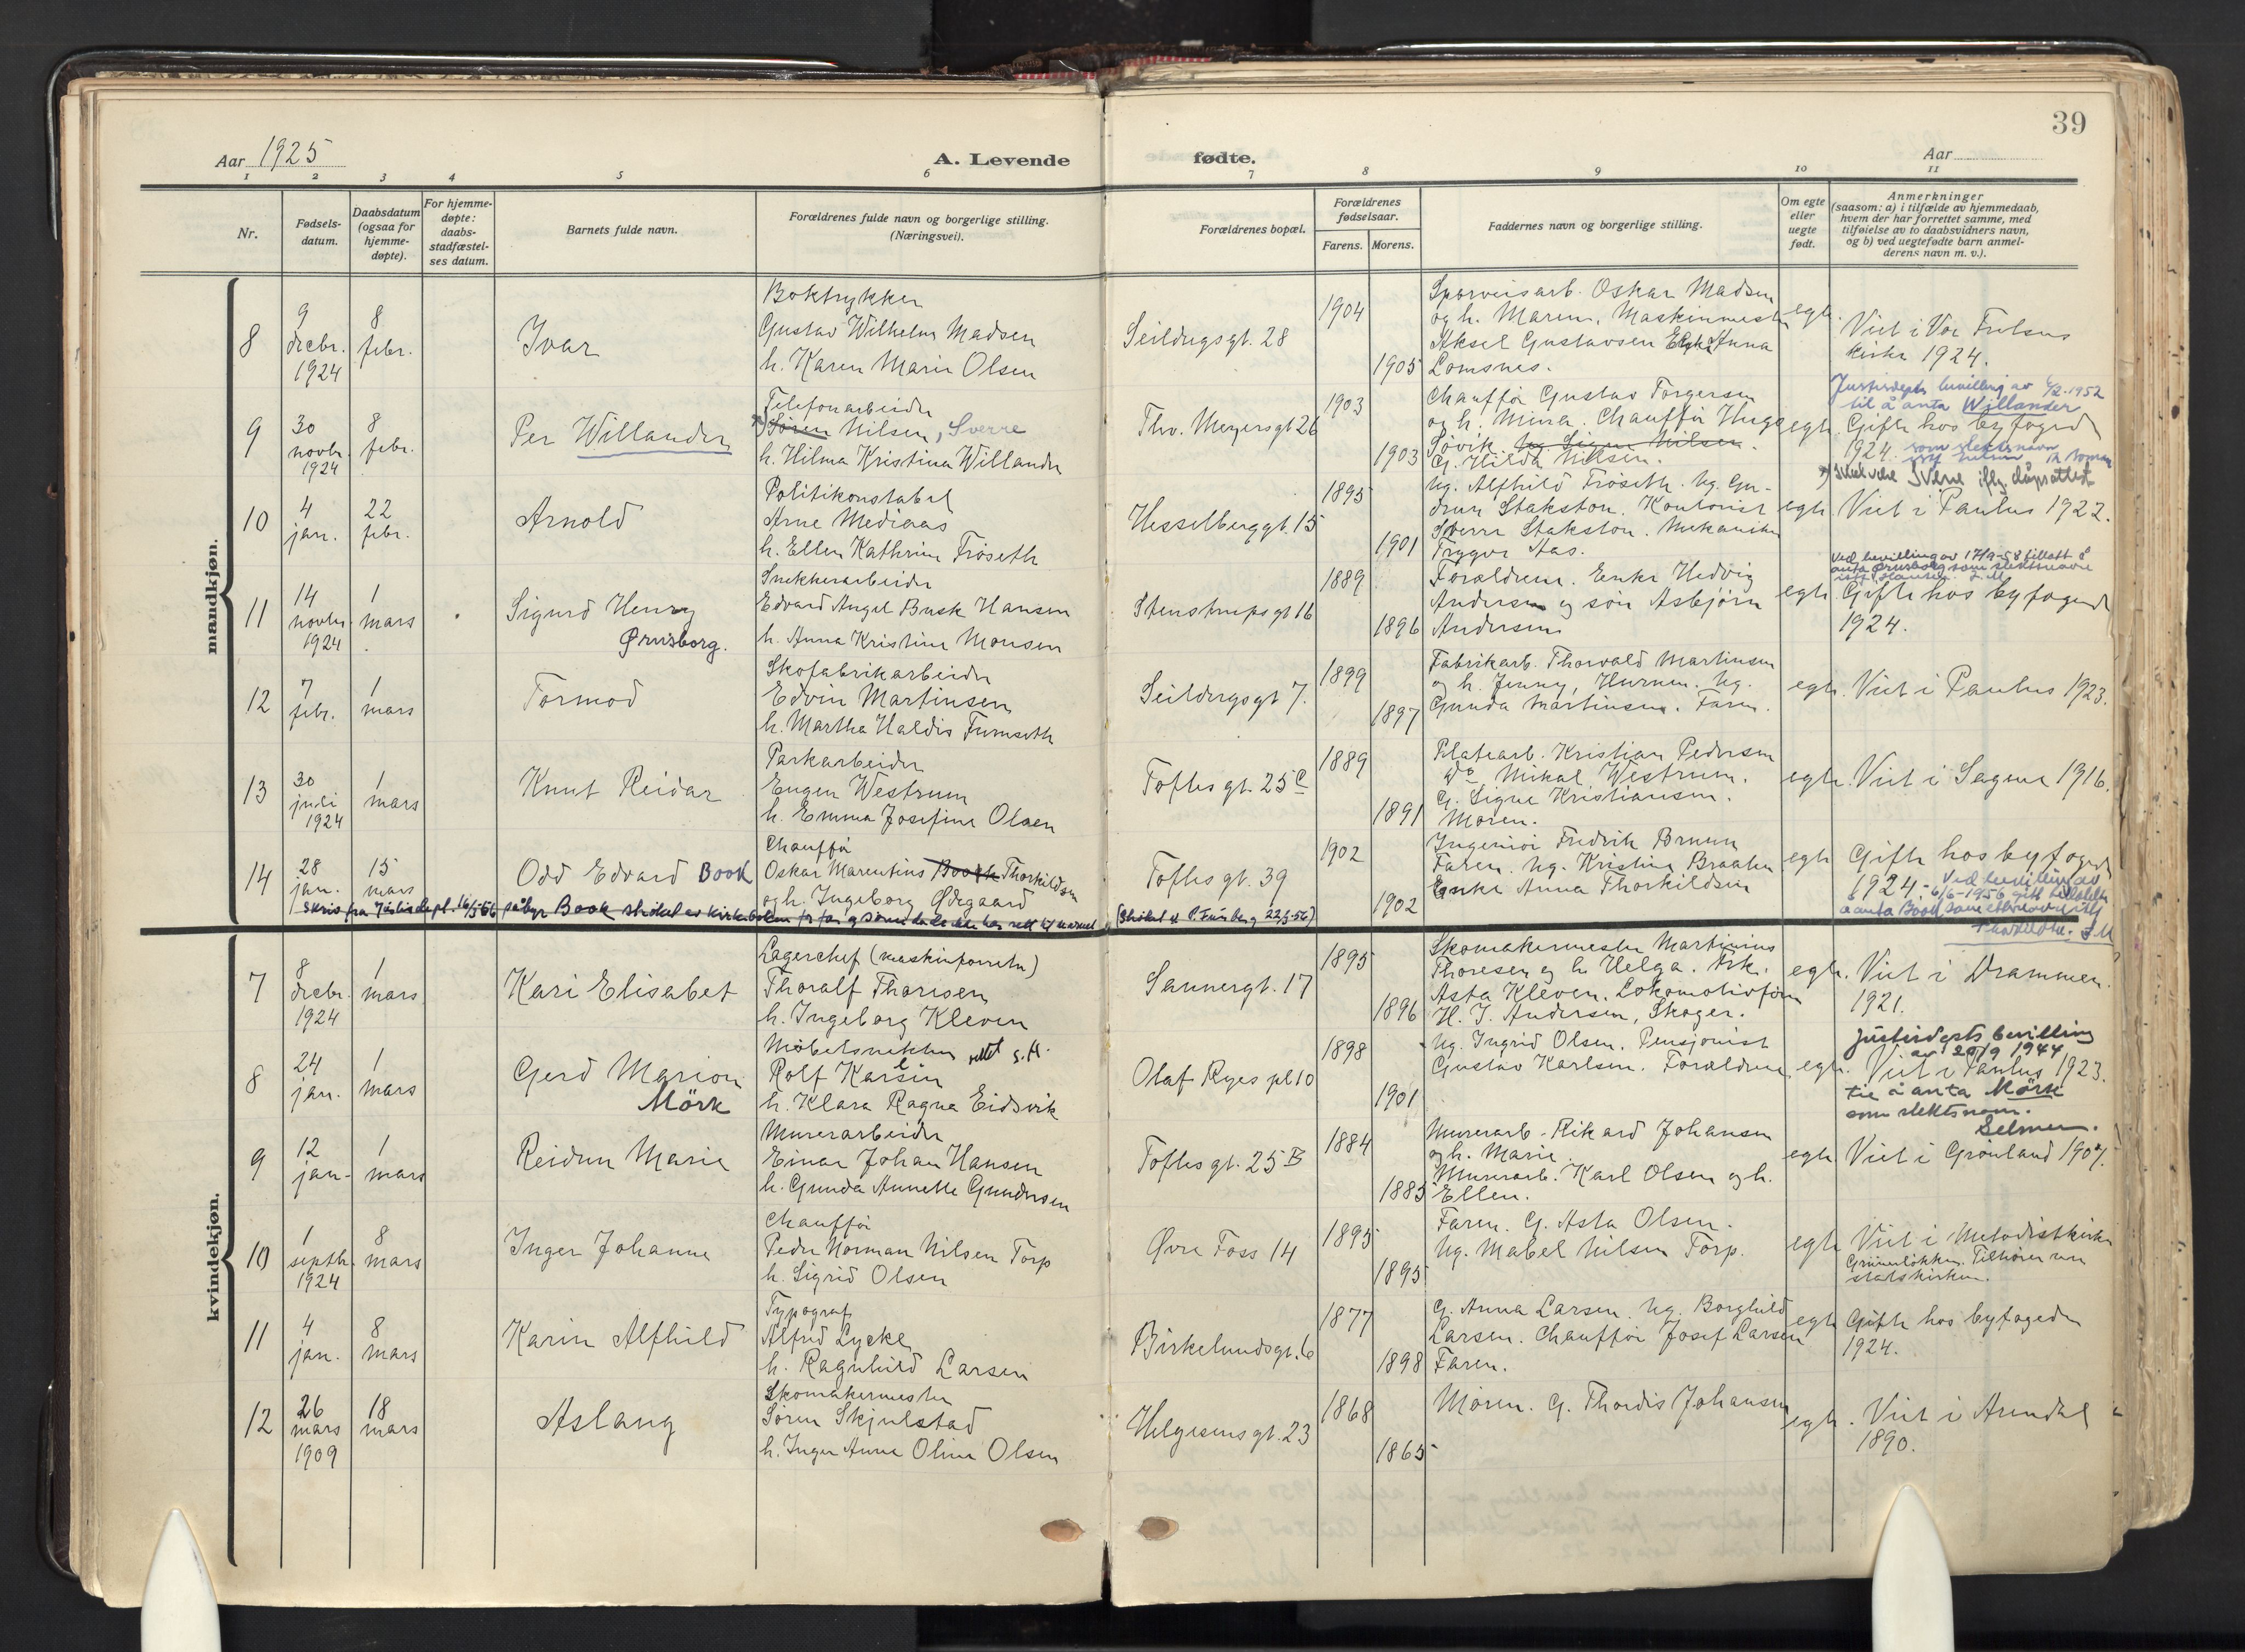 39
Aar 1925
A. Levende
fødte.
Aar
1 2 3 4 5 6 7 8 9 10 11
Nr.
Fødsels-
datum.
Daabsdatum
(ogsaa for
hjemme-
døpte).
For hjemme-
døpte:
daabs-
stadfæstel-
ses datum.
Barnets fulde navn.
Forældrenes fulde navn og borgerlige stilling.
(Næringsvei).
Forældrenes bopæl.
Forældrenes
fødselsaar.
Farens. Morens.
Faddernes navn og borgerlige stilling.
Om egte
eller
uegte
født.
Anmerkninger
(saasom: a) i tilfælde av hjemmedaab,
hvem der har forrettet samme, med
tilføielse av to daabsvidners navn,
og b) ved uegtefødte barn anmel-
derens navn m. v.).
mandkjøn.
8
9
decbr.
1924
8
febr.
Ivar
Boktrykker
Gustav Wilhelm Madsen
h. Karen Marie Olsen
Seildugsgt. 28
1904
1905
Sporveisarb. Oskar Madsen
og h. Maren, Maskinmester
Aksel Gustavsen Anna
Lomsnes.
egte.
Viet i Vor Frelsers
kirke 1924.
9
30
novbr.
1924
8
febr.
Per Willander
Telefonarbeider
Søren Nilsen, Sverre
h. Hilma Kristina Willander
Thv. Meyersgt 26
1903
1903
Chauffør Gustav Torgersen
og h. Mina. Chauffør Hugo
Søvik. Ug. Signe Nilsen.
G. Hilda Nilsen.
egte.
Justisdepts bevilling av 6/2-1952
til å anta Willander
Gifte hos byfoged
1924. som slektsnavn
x) skal være Sverre iflg. dåpsattest
10
4
jan.
22
febr.
Arnold
Politikonstabel
Arne Mediaas
h. Ellen Kathrine Frøseth
Hesselberggt. 15
1895
1901
Ug. Alfhild Frøseth. Ug. Gu-
drun Stakston. Kontorist
Sverre Stakston. Mekaniker
Trygve Aas.
egte.
Viet i Paulus 1922.
11
14
novbr.
1924
1
mars
Sigurd Henry
Ørnsborg.
Snekkerarbeider
Edvard Angel Busk Hansen
h. Anna Kristine Monsen
Stenstrupsgt 16
1889
1896
Forældrene. Enke Hedvig
Andersen og søn Asbjørn
Andersen
egte.
Ved bevilling av 17/9-58 tillatt å
anta Ørnsborg som slektsnavn
istf. Hansen.
Gifte hos byfoged
1924.
12
7
febr.
1
mars
Tormod
Skofabrikarbeider
Edvin Martinsen
h. Martha Haldis Furuseth
Seildugsgt 7.
1899
1897
Fabrikarb. Thorvald Martinsen
og h. Jenny, Hurum. Ug.
Gunda Martinsen. Faren.
egte.
Viet i Paulus 1923.
13
30
juli
1924
1
mars
Knut Reidar
Parkarbeider
Eugen Westrum
h. Emma Josefine Olsen
Toftes gt. 25 C
1889
1891
Platearb. Kristian Pedersen
Do Mikal Westrum.
G. Signe Kristiansen.
Moren.
egte.
Viet i Sagene 1916.
14
28
jan.
15
mars
Odd Edvard Book
Chauffør
Oskar Marentius Book Thorkildsen
og h. Ingeborg Ødegaard
Toftes gt. 39
1902
1902
Ingeniør Fredrik Bruun
Faren. Ug. Kristine Braaten
Enke Anna Thorkildsen
egte
Gifte hos byfoged
1924 - Ved bevilling av
6/6-1956 gitt tillatelse
å anta Book som etternavn istf
Thorkildsen.
Skriv fra Justisdept. 16/5-56 påbyr Book strøket av kirkeboken for far og sønn da de ikke har rett til navnet
(Strøket 22/5-56)
kvindekjøn.
7
8
decbr.
1924
1
mars
Kari Elisabet
Lagerchef (maskinforretn)
Thoralf Thoresen
h. Ingeborg Kleven
Sannergt. 17
1895
1896
Skomakermester Martinius
Thoresen og h. Helga. Frk.
Asta Kleven. Lokomotivfører
H. J. Andersen, Skoger.
egte.
Viet i Drammen.
1921.
8
24
jan.
1
mars
Gerd Marion
Mörk
Møbelsnekker rettet S.H.
Rolf Karlsen
h. Klara Ragna Eidsvik
Olaf Ryes pl 10
1898
1901
Ug. Ingrid Olsen. Pensjonist
Gustav Karlsen. Forældrene.
egte.
Justisdepts bevilling
av 20/9 1944
Viet i Paulus 1923.
til å anta Mörk
som slektsnavn.
Selmer.
9
12
jan.
1
mars
Reidun Marie
Murerarbeider
Einar Johan Hansen
h. Gunda Annette Gundersen
Toftes gt. 25 B
1884
1885
Murerarb. Rikard Johansen
og h. Marie.
Murerarb. Karl Olsen og h.
Ellen.
egte.
Viet i Grønland 1907.
10
1
septbr.
1924
8
mars
Inger Johanne
Chauffør
Peder Norman Nilsen Torp
h. Sigrid Olsen
Øvre Foss 14
1895
1895
Faren. G. Asta Olsen.
Ug. Mabel Nilsen Torp.
egte
Viet i Metodistkirken
Grünerløkken. Tilhører nu
statskirken.
11
4
jan.
8
mars
Karin Alfhild
Typograf
Alfred Lycke
h. Ragnhild Larsen
Birkelundsgt. 6
1877
1898
G. Anna Larsen. Ug. Borghild
Larsen. Chauffør Josef Larsen
Faren.
egte
Gifte hos byfogeden
1924.
12
26
mars
1909
18
mars
Aslaug
Skomakermester
Søren Skjulstad
h. Inger Anne Oline Olsen
Helgesensgt. 23
1868
1865
Moren. G. Thordis Johansen
egte.
Viet i Arendal
1890.